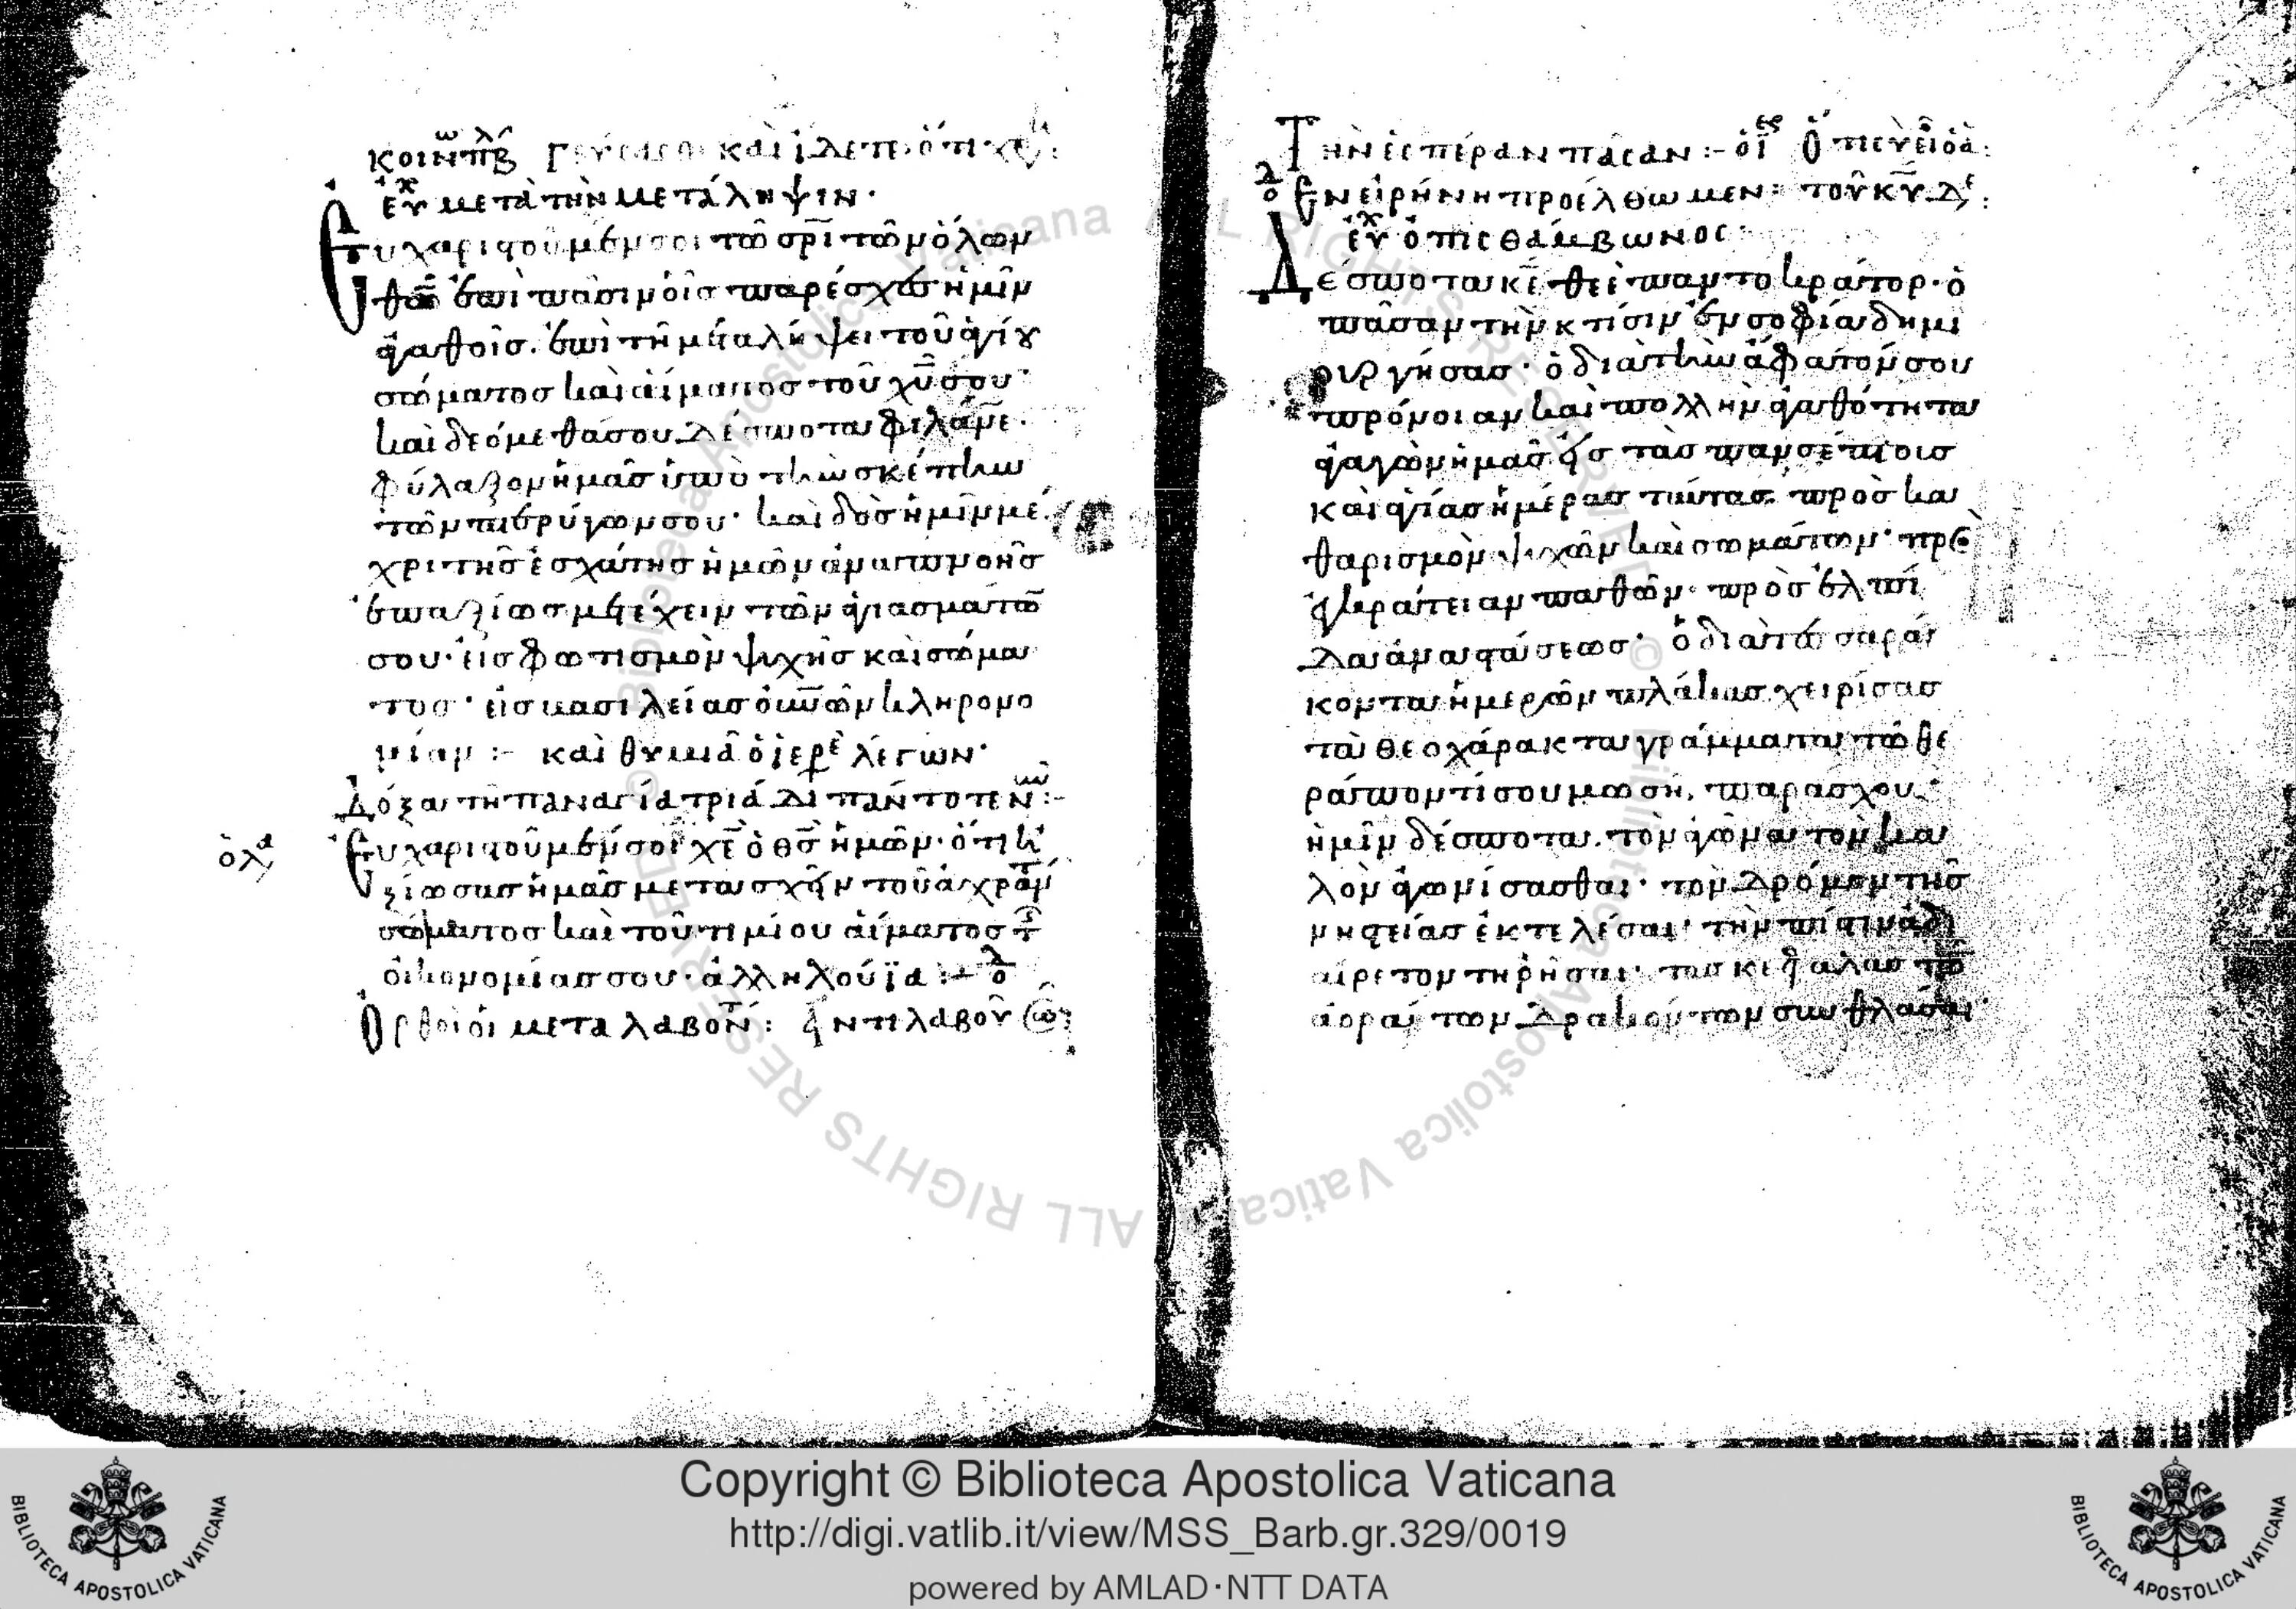 κοινω πλ Γεύσασθε καὶ ἴδετε ὅτι χς:
εὐχ μετὰ τὴν μετάληψιν·
Εὐχαριστοῦμέν σοι τῶ σρι τῶν ὅλων
θω ἐπὶ πᾶσιν οἷς παρέσχου ἡμῖν
ἀγαθοῖς. ἐπὶ τῆ μεταλήψει τοῦ ἁγίου
σώματος καὶ αἵματος τοῦ χυ σου·
καὶ δεόμεθά σου δέσποτα φιλάνε·
φύλαξον ἡμᾶς ὑπὸ τὴν σκέπην
τῶν πτερύγων σου· καὶ δὸς ἡμῖν μέ
χρι τῆς ἐσχάτης ἡμῶν ἀναπνοῆς
ἐπαξίως μετέχειν τῶν ἁγιασμάτω
σου· εἰς φωτισμὸν ψυχῆς καὶ σώμα
τος· εἰς βασιλείας οὐνῶν κληρονο
μίαν :- καὶ θυμιᾶ ὁ ἱερε λέγων·
Δόξα τῆ παναγία τριάδι πάντοτε ν :-
ὁ λα Εὐχαριστοῦμέν σοι χε ὁ θς ἡμῶν· ὅτι κ
ξίωσας ἡμᾶς μετασχεῖν τοῦ ἀχράν
σώματος καὶ τοῦ τιμίου αἵματος τ
οἰκονομίας σου· ἀλληλούϊα :-
Ὀρθοὶ οἱ μεταλαβόν: ἀντιλαβοῦ
Τὴν ἑσπέραν πᾶσαν :-
Ἐν εἰρήνη προέλθωμεν: τοῦ κυ δε:
εὐχ ὀπισθάμβωνος·
Δέσποτα κε θεὲ παντοκράτορ· ὁ
πᾶσαν τὴν κτίσιν ἐν σοφία δημι
ουργήσας· ὁ διὰ τὴν ἄφατόν σου
πρόνοιαν καὶ πολλὴν ἀγαθότητα
ἀγαγὼν ἡμᾶς εἰς τὰς πανσέπτοις
καὶ ἁγίας ἡμέρας ταύτας. πρὸς κα
θαρισμὸν ψυχῶν καὶ σωμάτων· πρὸς
ἐγκράτειαν παθῶν· πρὸς ἐλπί
δα ἀναστάσεως· ὁ διὰ τεσσαρά
κοντα ἡμερῶν πλάκας χειρίσας
τὰ θεοχάρακτα γράμματα τῶ θε
ράποντί σου μωσῆ, παράσχου
ἡμῖν δέσποτα. τὸν ἀγῶνα τὸν κα
λὸν ἀγωνίσασθαι· τὸν δρόμον τῆς
νηστείας ἐκτελέσαι· τὴν πίστιν ἀδι
αίρετον τηρῆσαι· τὰς κεφαλὰς τῶ
ἀοράτων δρακόντων συνθλάσαι·
Copyright © Biblioteca Apostolica Vaticana
http://digi.vatlib.it/view/MSS_Barb.gr.329/0019
powered by AMLAD·NTT DATA
BIBLIOTECA APOSTOLICA VATICANA
BIBLIOTECA APOSTOLICA VATICANA